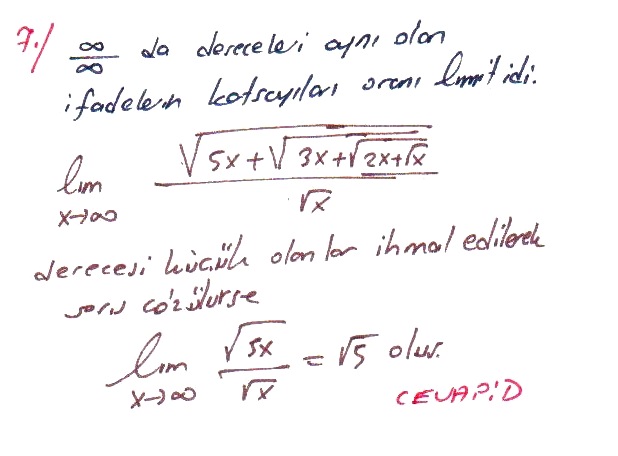 7./ ∞/∞ da dereceleri aynı olan
ifadelerin katsayıları oranı limit idi.
lim x→∞ √(5x+√(3x+√(2x+√x))) / √x
derecesi küçük olanlar ihmal edilerek
soru çözülürse
lim x→∞ √5x / √x = √5 olur.
CEVAP: D